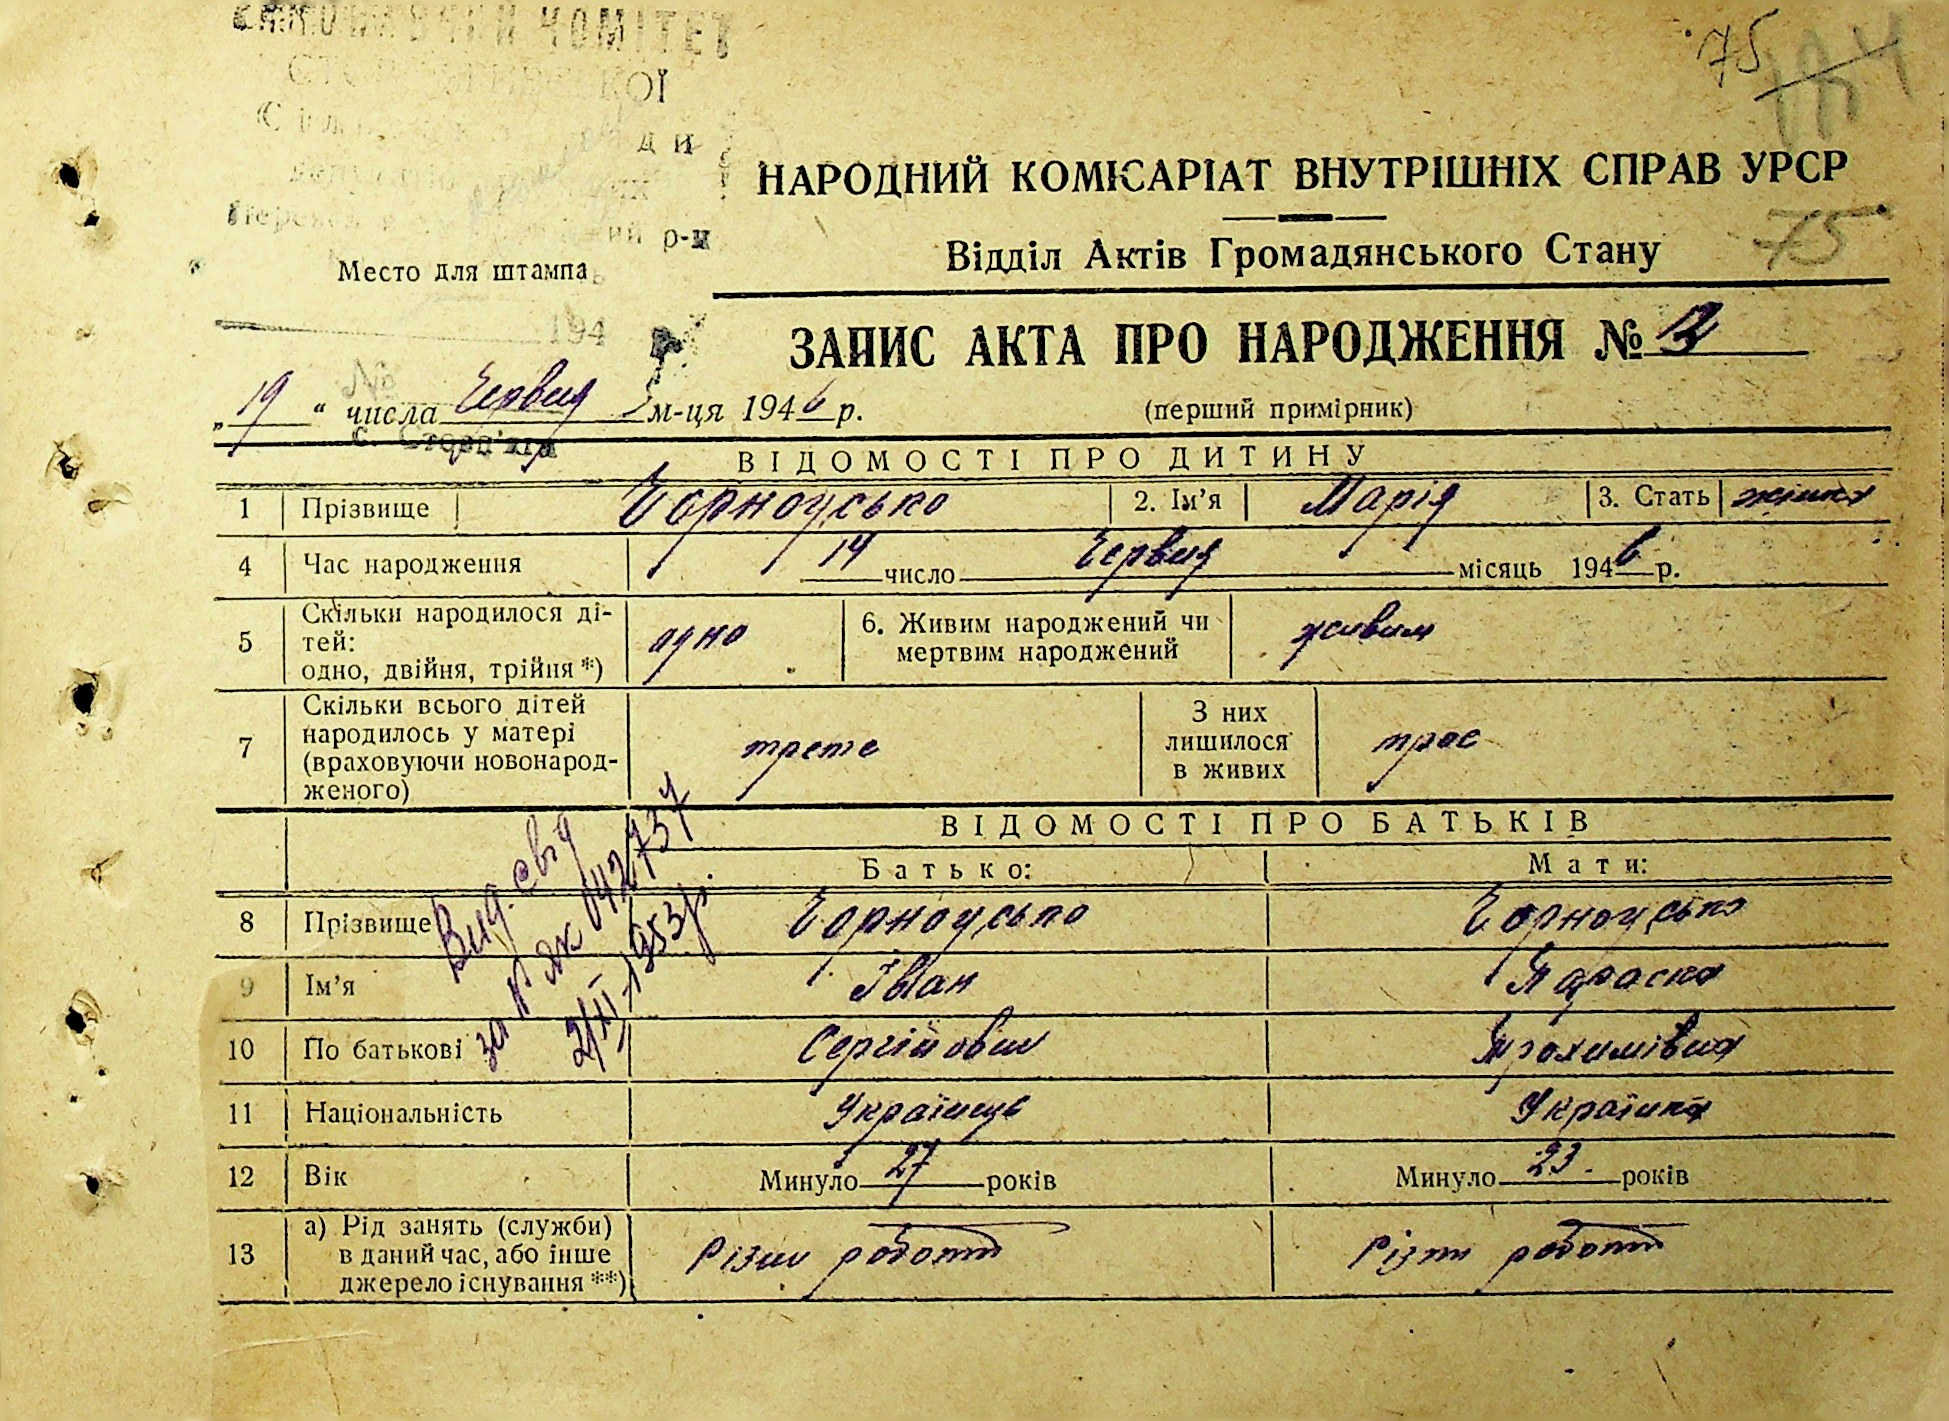 КОМІТЕТ
КОЇ
ди
р-н
75
НАРОДНИЙ КОМІСАРІАТ ВНУТРІШНІХ СПРАВ УРСР
75
Відділ Актів Громадянського Стану
Место для штампа
194
ЗАПИС АКТА ПРО НАРОДЖЕННЯ №
№
„19“ числа Червня м-ця 1946 р. (перший примірник)
ВІДОМОСТІ ПРО ДИТИНУ
1 Прізвище Чорноусько 2. Ім’я Марія 3. Стать жіноча
4 Час народження 14 число Червня місяць 1946 р.
5 Скільки народилося ді-
тей:
одно, двійня, трійня *) одно 6. Живим народжений чи
мертвим народжений живим
7 Скільки всього дітей
народилось у матері
(враховуючи новонарод-
женого) третє З них
лишилося
в живих троє
ВІДОМОСТІ ПРО БАТЬКІВ
Батько: Мати:
Вид. свід
за № ЯК 042737
2/XII-1953р.
8 Прізвище Чорноусько Чорноусько
9 Ім’я Іван Параска
10 По батькові Сергійович Трохимівна
11 Національність Українець Українка
12 Вік Минуло 27 років Минуло 23. років
13 а) Рід занять (служби)
в даний час, або інше
джерело існування **) Різні роботи Різні роботи